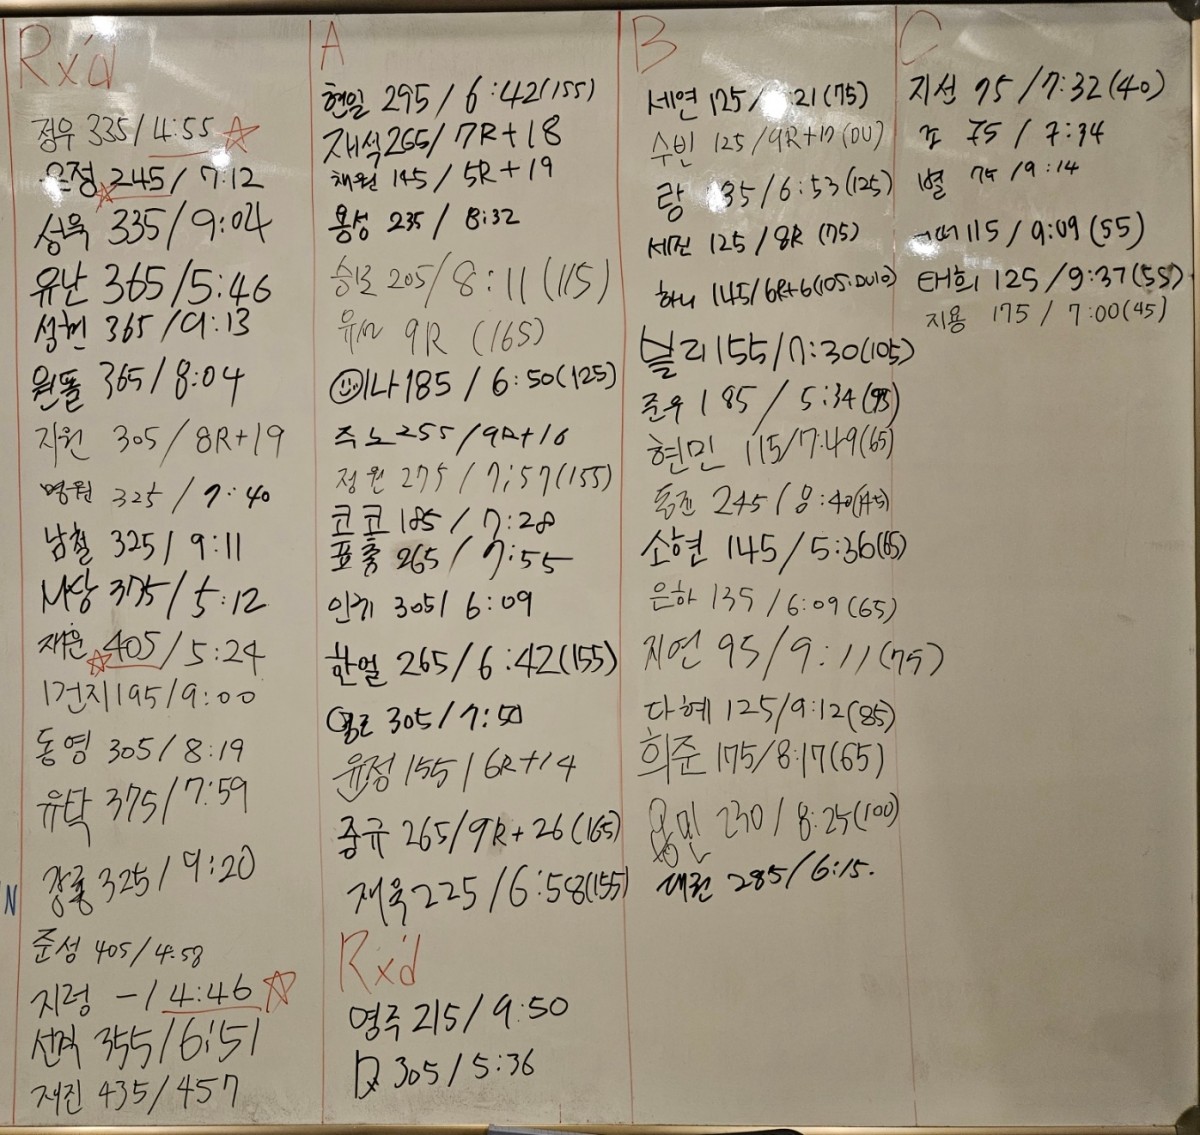 Rx'd
정우 335/4:55
은정 245/7:12
성욱 335/9:04
유난 365/5:46
성현 365/9:13
원똘 365/8:04
지원 305/8R+19
명원 325/7:40
남철 325/9:11
M상 375/5:12
재훈 405/5:24
1건지 195/9:00
동영 305/8:19
유탁 375/7:59
장롱 325/9:20
N
준성 405/4:58
지렁 -/4:46
선덕 355/6:51
재진 435/457
A
현일 295/6:42(155)
재석 265/7R+18
채원 145/5R+19
용성 235/8:32
205/8:11(115)
9R (165)
미나 185/6:50(125)
주노 255/9R+16
정원 275/7:57(155)
코코 185/7:28
표충 265/7:55
인귀 305/6:09
한얼 265/6:42(155)
305/7:50
윤정 155/6R+14
중규 265/9R+26(165)
재욱 225/6:58(155)
Rx'd
영주 215/9:50
305/5:36
B
세연 125/ :21(75)
수빈 125/9R+17(DU)
랑 135/6:53(125)
세진 125/8R (75)
하니 145/6R+6(105:DU10)
블리 155/7:30(105)
준우 185/5:34(95)
현민 115/7:49(65)
동진 245/8:40(145)
소현 145/5:36(65)
은하 135/6:09(65)
지연 95/9:11(75)
다혜 125/9:12(85)
희준 175/8:17(65)
용민 230/8:25(100)
대원 285/6:15.
C
지선 95/7:32(40)
조 75/7:34
별 75/9:14
115/9:09(55)
태희 125/9:37(55)
지용 175/7:00(45)